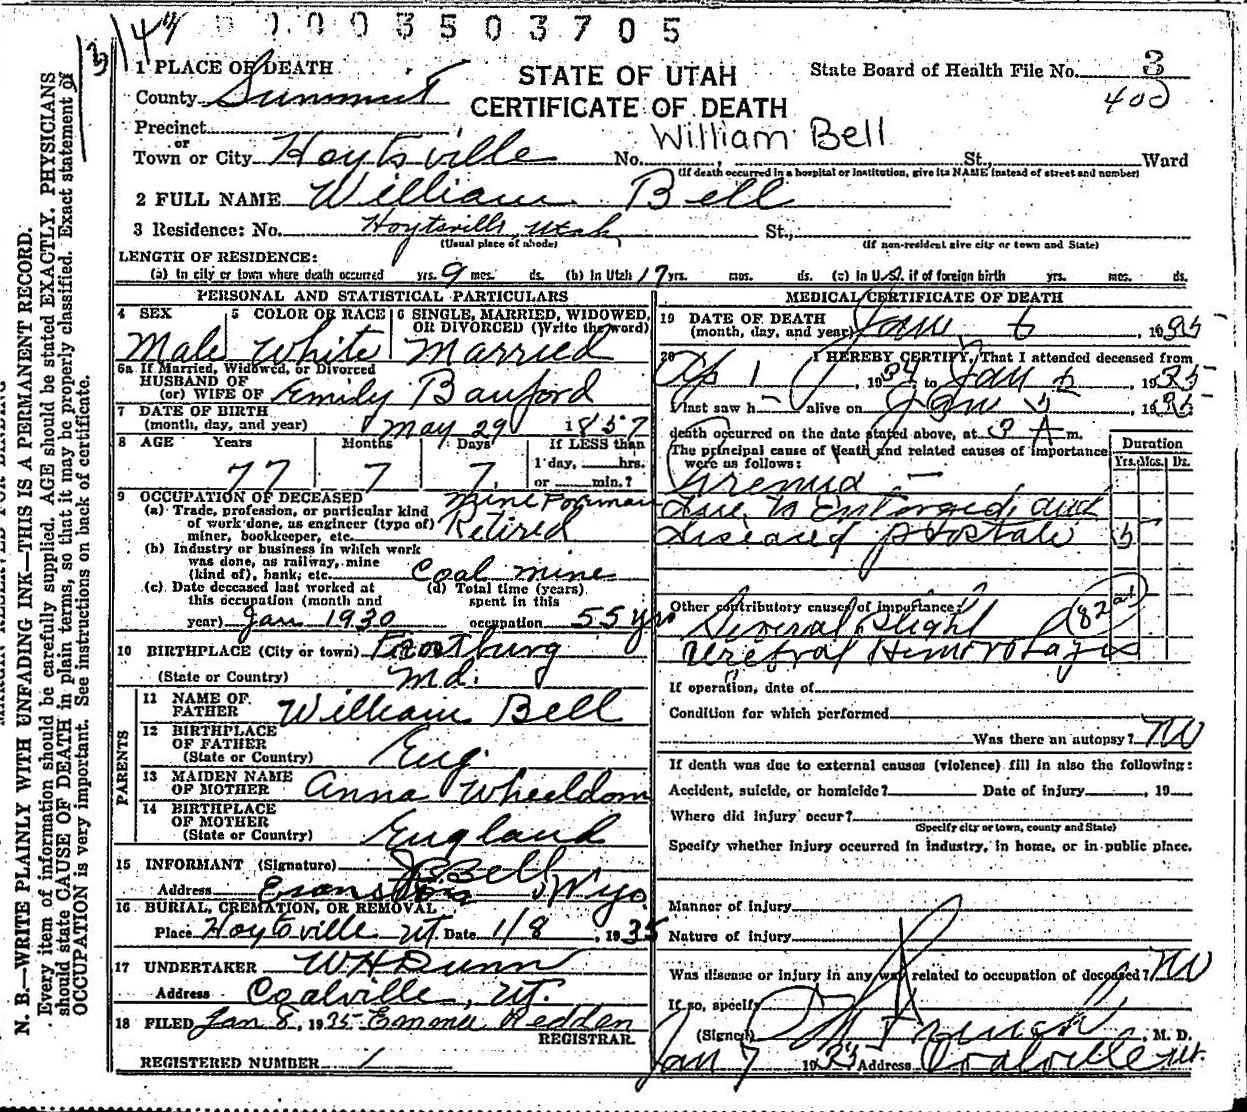 0 0 0 3 5 0 3 7 0 5
144
1 PLACE OF DEATH
County Summit
STATE OF UTAH
CERTIFICATE OF DEATH
State Board of Health File No. 3
400
Precinct
or
Town or City Hoytsville No. St., Ward
William Bell
(If death occurred in a hospital or institution, give its NAME instead of street and number)
2 FULL NAME William Bell
3 Residence: No. Hoytsville, Utah St.,
(Usual place of abode) (If non-resident give city or town and State)
LENGTH OF RESIDENCE:
(a) In city or town where death occurred yrs. 9 mos. ds. (b) In Utah 17 yrs. mos. ds. (c) In U.S. if of foreign birth yrs. mos. ds.
PERSONAL AND STATISTICAL PARTICULARS
4 SEX 5 COLOR OR RACE 6 SINGLE, MARRIED, WIDOWED, OR DIVORCED (Write the word)
Male White Married
6a If Married, Widowed, or Divorced
HUSBAND OF
(or) WIFE OF Emily Bauford
7 DATE OF BIRTH
(month, day, and year) May 29 1857
8 AGE Years Months Days If LESS than
1 day, hrs.
77 7 7 or min.?
9 OCCUPATION OF DECEASED Mine Forman
(a) Trade, profession, or particular kind
of work done, as engineer (type of) Retired
miner, bookkeeper, etc.
(b) Industry or business in which work
was done, as railway, mine
(kind of), bank, etc. Coal mine
(c) Date deceased last worked at (d) Total time (years)
this occupation (month and spent in this
year) Jan 1930 occupation 55 yrs
10 BIRTHPLACE (City or town) Frostburg
(State or Country) Md.
PARENTS
11 NAME OF
FATHER William Bell
12 BIRTHPLACE
OF FATHER
(State or Country) Eng.
13 MAIDEN NAME
OF MOTHER Anna Wheeldom
14 BIRTHPLACE
OF MOTHER
(State or Country) England
15 INFORMANT (Signature) Bell
Address Evanston, Wyo.
16 BURIAL, CREMATION, OR REMOVAL
Place Hoytsville UT Date 1/8, 1935
17 UNDERTAKER W H Dunn
Address Coalville, UT.
18 FILED Jan 8, 1935 Emma Redden
REGISTRAR.
REGISTERED NUMBER 1
MEDICAL CERTIFICATE OF DEATH
19 DATE OF DEATH
(month, day, and year) Jan 6, 1935
20 I HEREBY CERTIFY, That I attended deceased from
Ap 1, 1934 to Jan 6, 1935
I last saw h alive on Jan 5, 1935
death occurred on the date stated above, at 3 A m.
The principal cause of death and related causes of importance
were as follows:
Duration
Yrs. Mos. Ds.
Uremia
due to Enlarged, and
Diseased prostate 5
Other contributory causes of importance:
Several Slight
Cerebral Hemorrhages
If operation, date of
Condition for which performed
Was there an autopsy? No
If death was due to external causes (violence) fill in also the following:
Accident, suicide, or homicide? Date of injury, 19
Where did injury occur?
(Specify city or town, county and State)
Specify whether injury occurred in industry, in home, or in public place.
Manner of injury
Nature of injury
Was disease or injury in any way related to occupation of deceased? No
If so, specify
(Signed) M. D.
Jan 7 19 Address Coalville Ut.
MARGIN RESERVED FOR BINDING
N. B.—WRITE PLAINLY WITH UNFADING INK—THIS IS A PERMANENT RECORD.
Every item of information should be carefully supplied. AGE should be stated EXACTLY. PHYSICIANS
should state CAUSE OF DEATH in plain terms, so that it may be properly classified. Exact statement of
OCCUPATION is very important. See instructions on back of certificate.